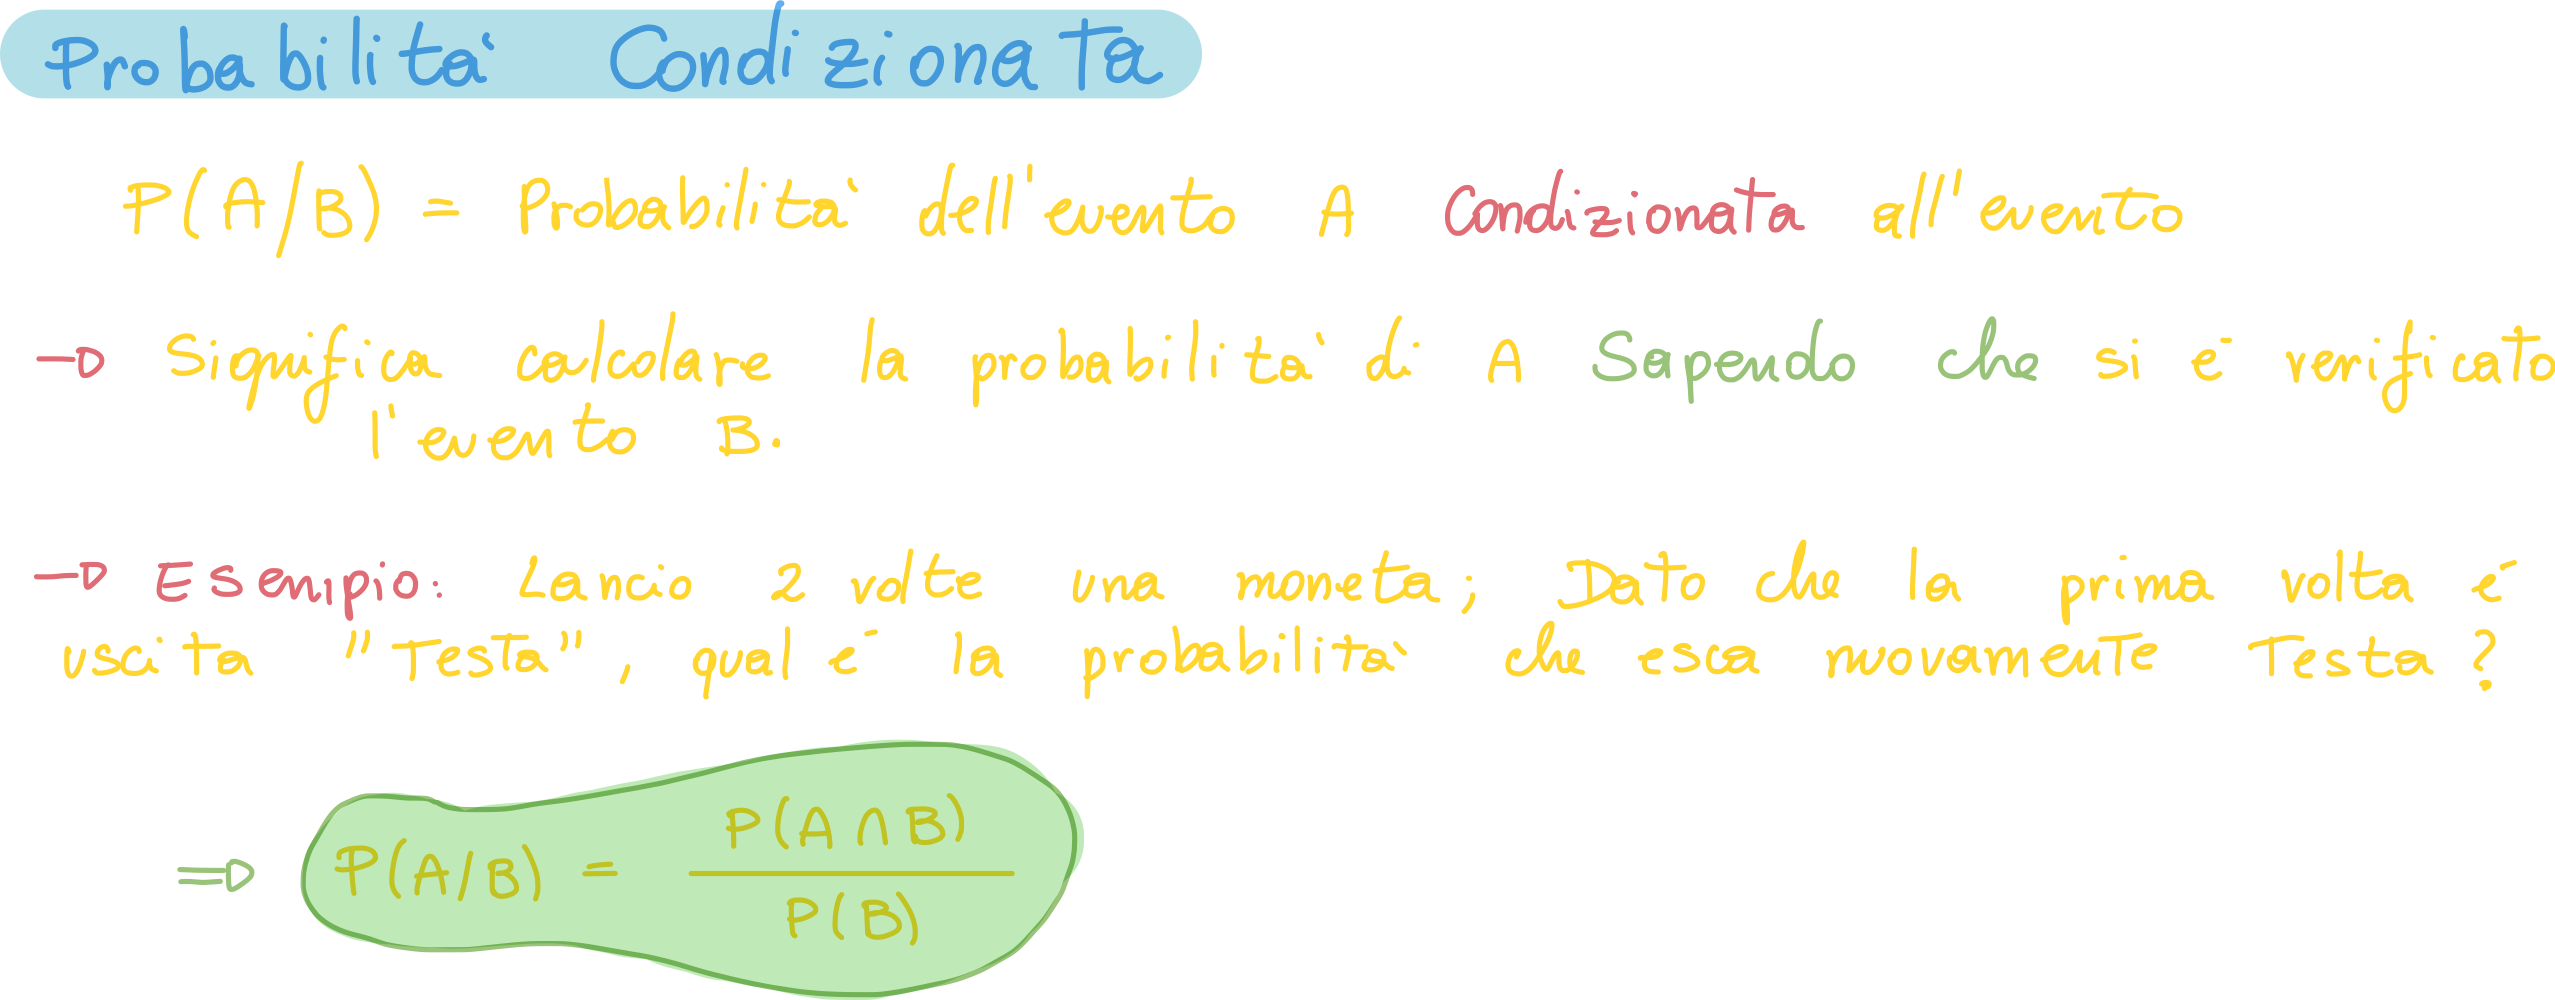 Probabilità Condizionata
P(A/B) = Probabilità dell'evento A Condizionata all'evento
→ Significa calcolare la probabilità di A Sapendo che si è verificato
l'evento B.
→ Esempio: Lancio 2 volte una moneta; Dato che la prima volta è
uscita "Testa", qual è la probabilità che esca nuovamente Testa?
⇒ P(A/B) = P(A ∩ B)
P(B)